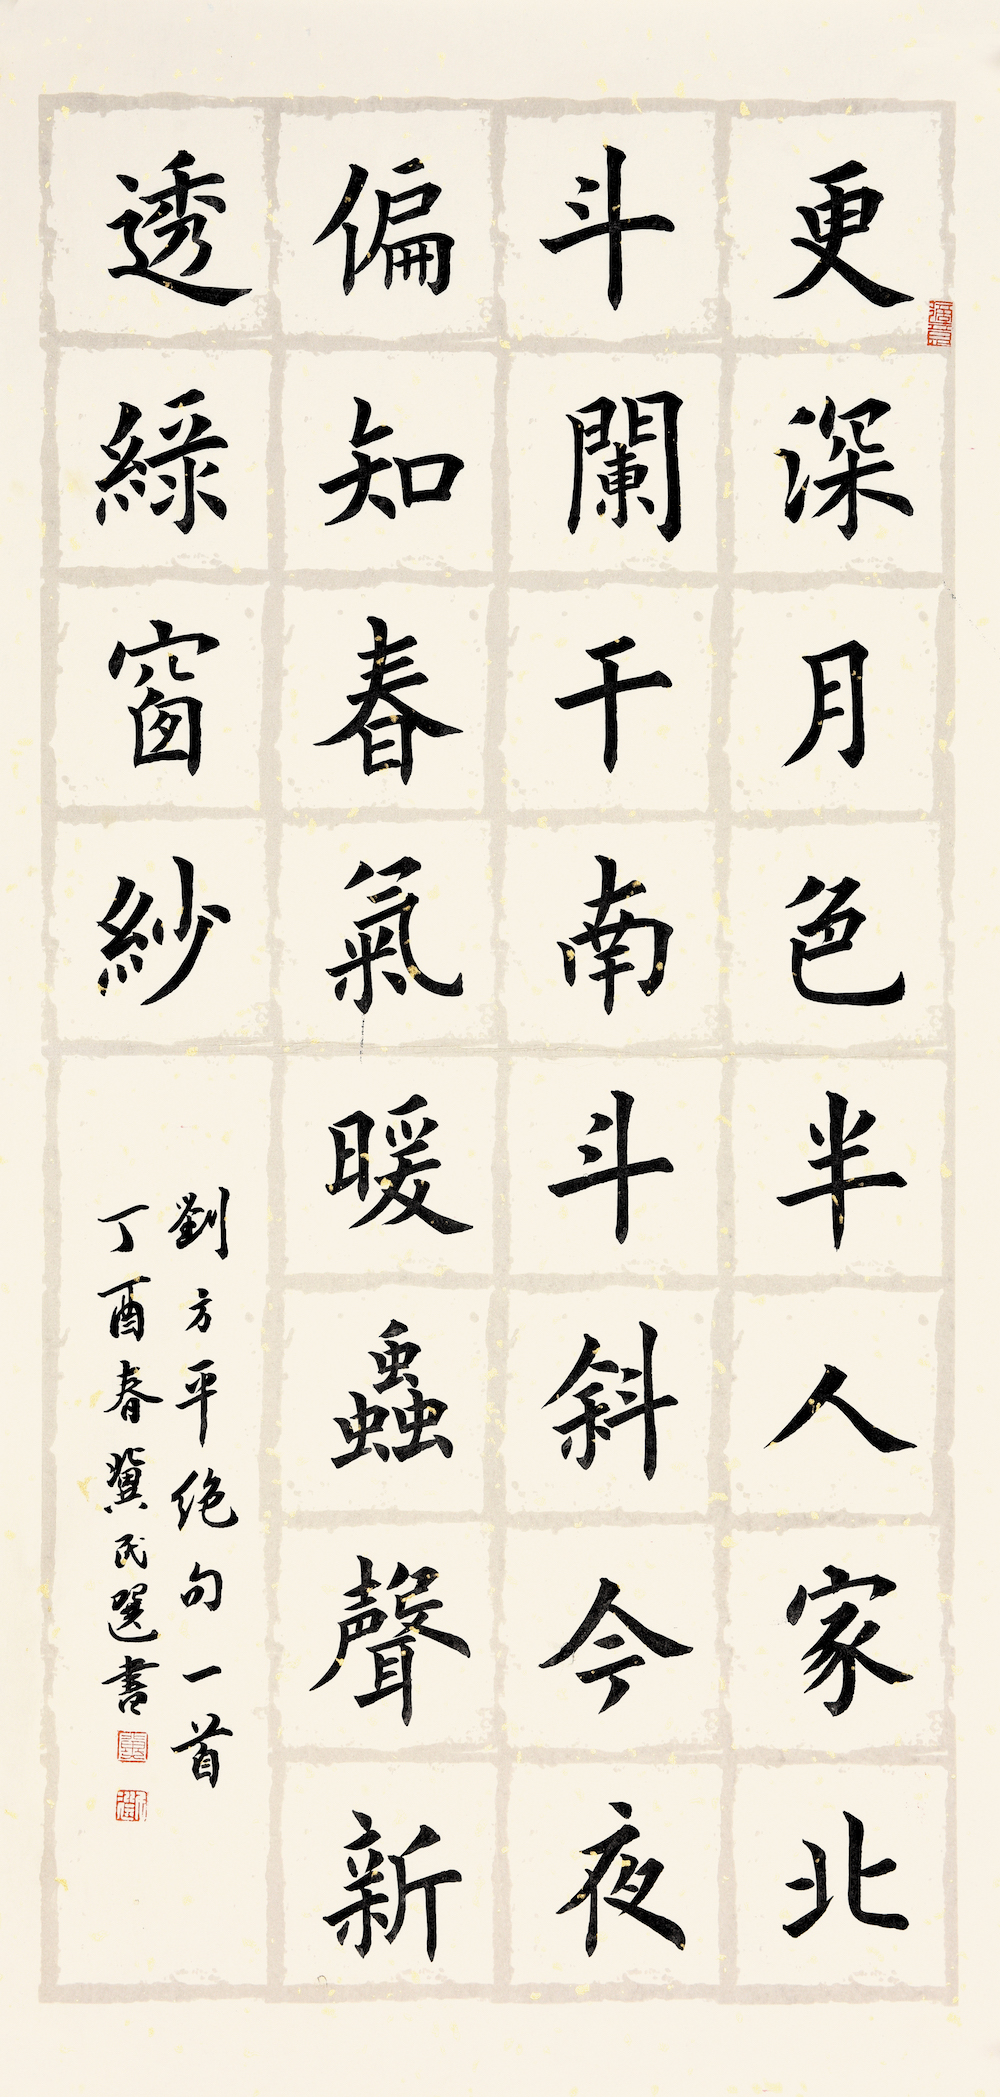 更深月色半人家北
斗闌干南斗斜今夜
偏知春氣暖蟲聲新
透綠窗紗
劉方平绝句一首
丁酉春冀民選書